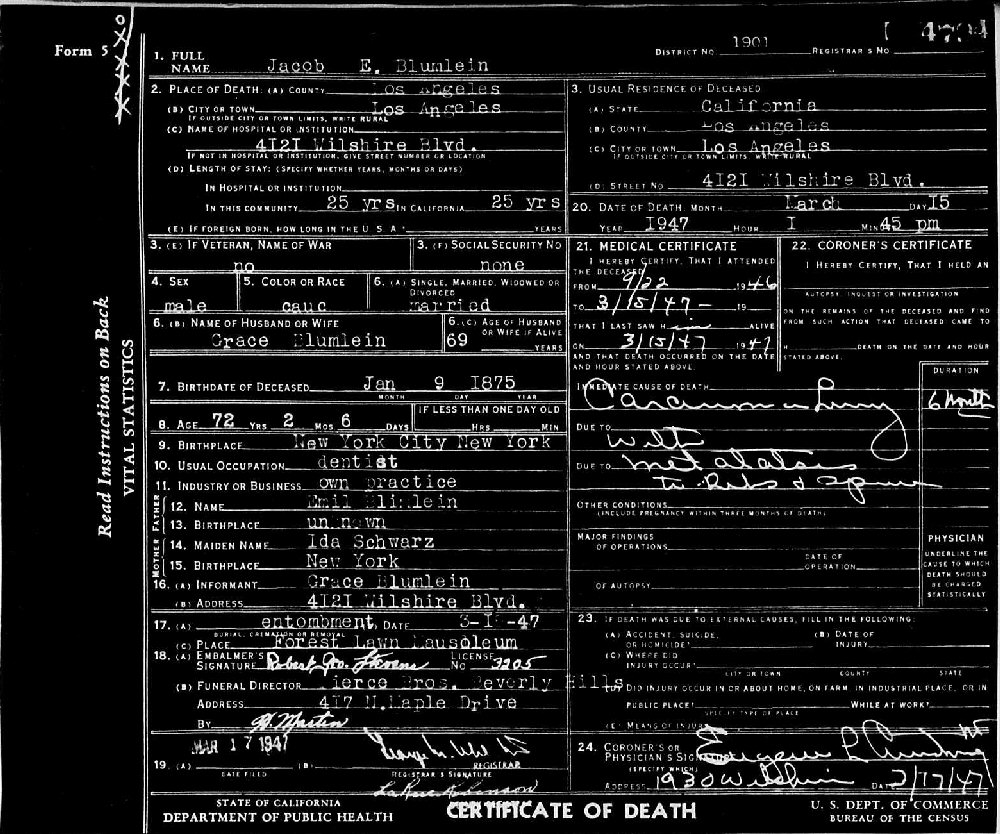 Form 5
XXXXO
1. FULL NAME Jacob E. Blumlein
DISTRICT NO. 1901 REGISTRAR'S NO. 4704
2. PLACE OF DEATH: (A) COUNTY Los Angeles
(B) CITY OR TOWN Los Angeles
IF OUTSIDE CITY OR TOWN LIMITS, WRITE RURAL
(C) NAME OF HOSPITAL OR INSTITUTION
4I2I Wilshire Blvd.
IF NOT IN HOSPITAL OR INSTITUTION, GIVE STREET NUMBER OR LOCATION
(D) LENGTH OF STAY: (SPECIFY WHETHER YEARS, MONTHS OR DAYS)
IN HOSPITAL OR INSTITUTION
IN THIS COMMUNITY 25 yrs IN CALIFORNIA 25 yrs
(E) IF FOREIGN BORN, HOW LONG IN THE U S A? YEARS
3. USUAL RESIDENCE OF DECEASED
(A) STATE California
(B) COUNTY Los Angeles
(C) CITY OR TOWN Los Angeles
IF OUTSIDE CITY OR TOWN LIMITS, WRITE RURAL
(D) STREET NO 4I2I Wilshire Blvd.
20. DATE OF DEATH: MONTH March DAY I5
YEAR I947 HOUR I MIN 45 pm
3. (E) IF VETERAN, NAME OF WAR
no
3. (F) SOCIAL SECURITY NO
none
4. SEX
male
5. COLOR OR RACE
cauc
6. (A) SINGLE, MARRIED, WIDOWED OR DIVORCED
married
6. (B) NAME OF HUSBAND OR WIFE
Grace Blumlein
6. (C) AGE OF HUSBAND OR WIFE IF ALIVE
69 YEARS
7. BIRTHDATE OF DECEASED Jan 9 I875
MONTH DAY YEAR
8. AGE 72 YRS 2 MOS 6 DAYS
IF LESS THAN ONE DAY OLD
HRS MIN
9. BIRTHPLACE New York City New York
10. USUAL OCCUPATION dentist
11. INDUSTRY OR BUSINESS own practice
FATHER
12. NAME Emil
13. BIRTHPLACE unknown
MOTHER
14. MAIDEN NAME Ida Schwarz
15. BIRTHPLACE New York
16. (A) INFORMANT Grace Blumlein
(B) ADDRESS 4I2I Wilshire Blvd.
17. (A) entombment, DATE 3-I -47
BURIAL, CREMATION OR REMOVAL
(C) PLACE Forest Lawn Mausoleum
18. (A) EMBALMER'S SIGNATURE Robert Stevens LICENSE NO 3205
(B) FUNERAL DIRECTOR Pierce Bros. Beverly Hills
ADDRESS 4I7 N.Maple Drive
BY H. Martin
MAR 17 1947
19. (A) DATE FILED (B) REGISTRAR'S SIGNATURE
REGISTRAR
21. MEDICAL CERTIFICATE
I HEREBY CERTIFY, THAT I ATTENDED THE DECEASED
FROM 9/22 1946
TO 3/15/47 - 19
THAT I LAST SAW H im ALIVE
ON 3/15/47 1947
AND THAT DEATH OCCURRED ON THE DATE AND HOUR STATED ABOVE.
22. CORONER'S CERTIFICATE
I HEREBY CERTIFY, THAT I HELD AN
AUTOPSY, INQUEST OR INVESTIGATION
ON THE REMAINS OF THE DECEASED AND FIND FROM SUCH ACTION THAT DECEASED CAME TO
H DEATH ON THE DATE AND HOUR STATED ABOVE.
DURATION
IMMEDIATE CAUSE OF DEATH
Carcinoma Lung 6 Months
DUE TO With
DUE TO metastatis
to Ribs & Spine
OTHER CONDITIONS
(INCLUDE PREGNANCY WITHIN THREE MONTHS OF DEATH)
MAJOR FINDINGS
OF OPERATIONS
DATE OF OPERATION
OF AUTOPSY
PHYSICIAN
UNDERLINE THE CAUSE TO WHICH DEATH SHOULD BE CHARGED STATISTICALLY
23. IF DEATH WAS DUE TO EXTERNAL CAUSES, FILL IN THE FOLLOWING:
(A) ACCIDENT, SUICIDE, OR HOMICIDE?
(B) DATE OF INJURY
(C) WHERE DID INJURY OCCUR?
CITY OR TOWN COUNTY STATE
(D) DID INJURY OCCUR IN OR ABOUT HOME, ON FARM, IN INDUSTRIAL PLACE, OR IN
PUBLIC PLACE? WHILE AT WORK?
SPECIFY TYPE OF PLACE
(E) MEANS OF INJURY
24. CORONER'S OR PHYSICIAN'S SIGNATURE Eugene L
(SPECIFY WHICH)
ADDRESS 1930 Wilshire DATE 3/17/47
STATE OF CALIFORNIA
DEPARTMENT OF PUBLIC HEALTH
CERTIFICATE OF DEATH
U. S. DEPT. OF COMMERCE
BUREAU OF THE CENSUS
Read Instructions on Back
VITAL STATISTICS